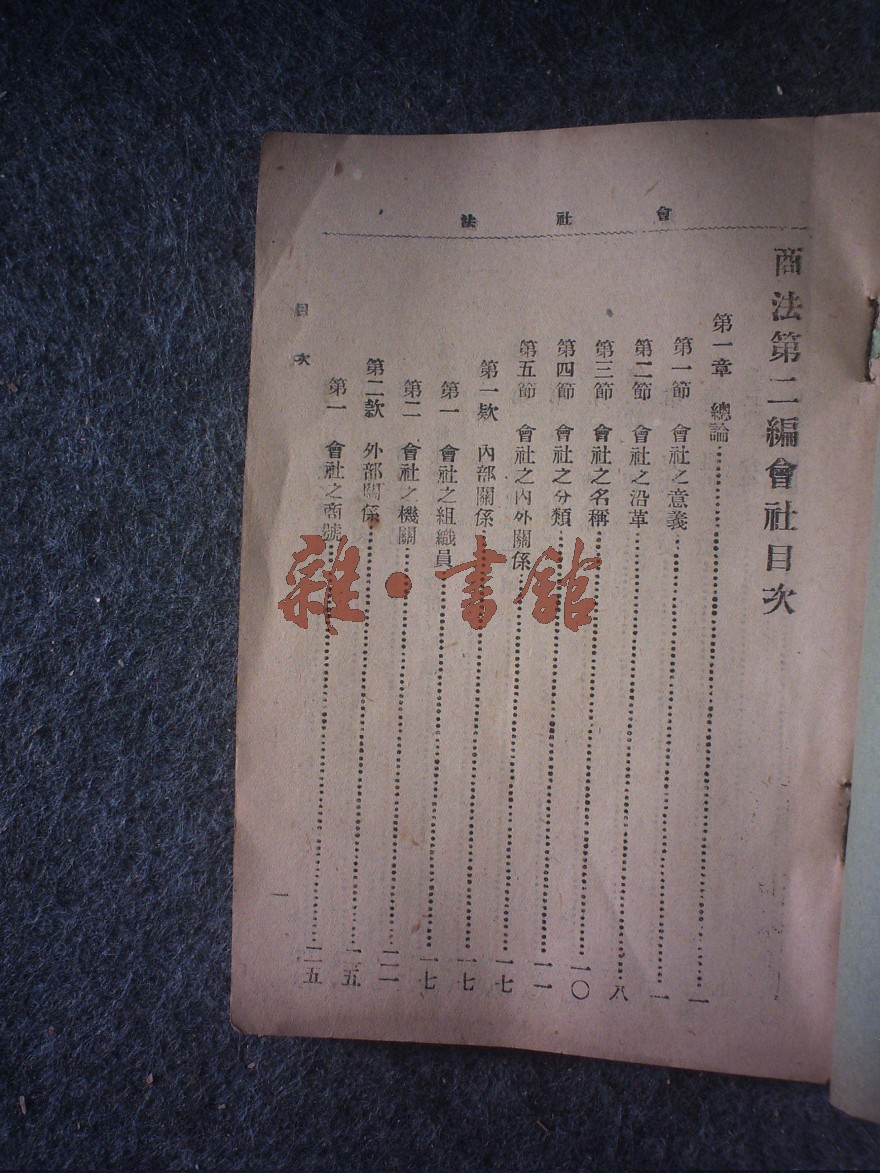 會社法
商法第二編會社目次
第一章 總論……一
第一節 會社之意義……一
第二節 會社之沿革……八
第三節 會社之名稱……一〇
第四節 會社之分類……一一
第五節 會社之內外關係……一七
第一欵 內部關係……一七
第一 會社之組織員……一七
第二 會社之機關……二一
第二款 外部關係……二五
第一 會社之商號……二五
目次
一
雜·書館